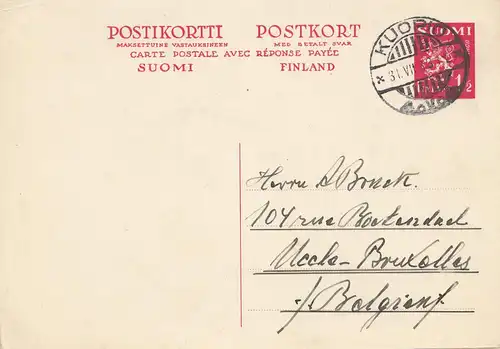 POSTIKORTTI POSTKORT
MAKSETTUINE VASTAUKSINEEN MED BETALT SVAR
CARTE POSTALE AVEC RÉPONSE PAYÉE
SUOMI FINLAND
SUOMI
1½
KUOPIO
31.VII
Herrn A Bonck.
104 rue Boetendael
Uccle-Bruxelles
/Belgien/